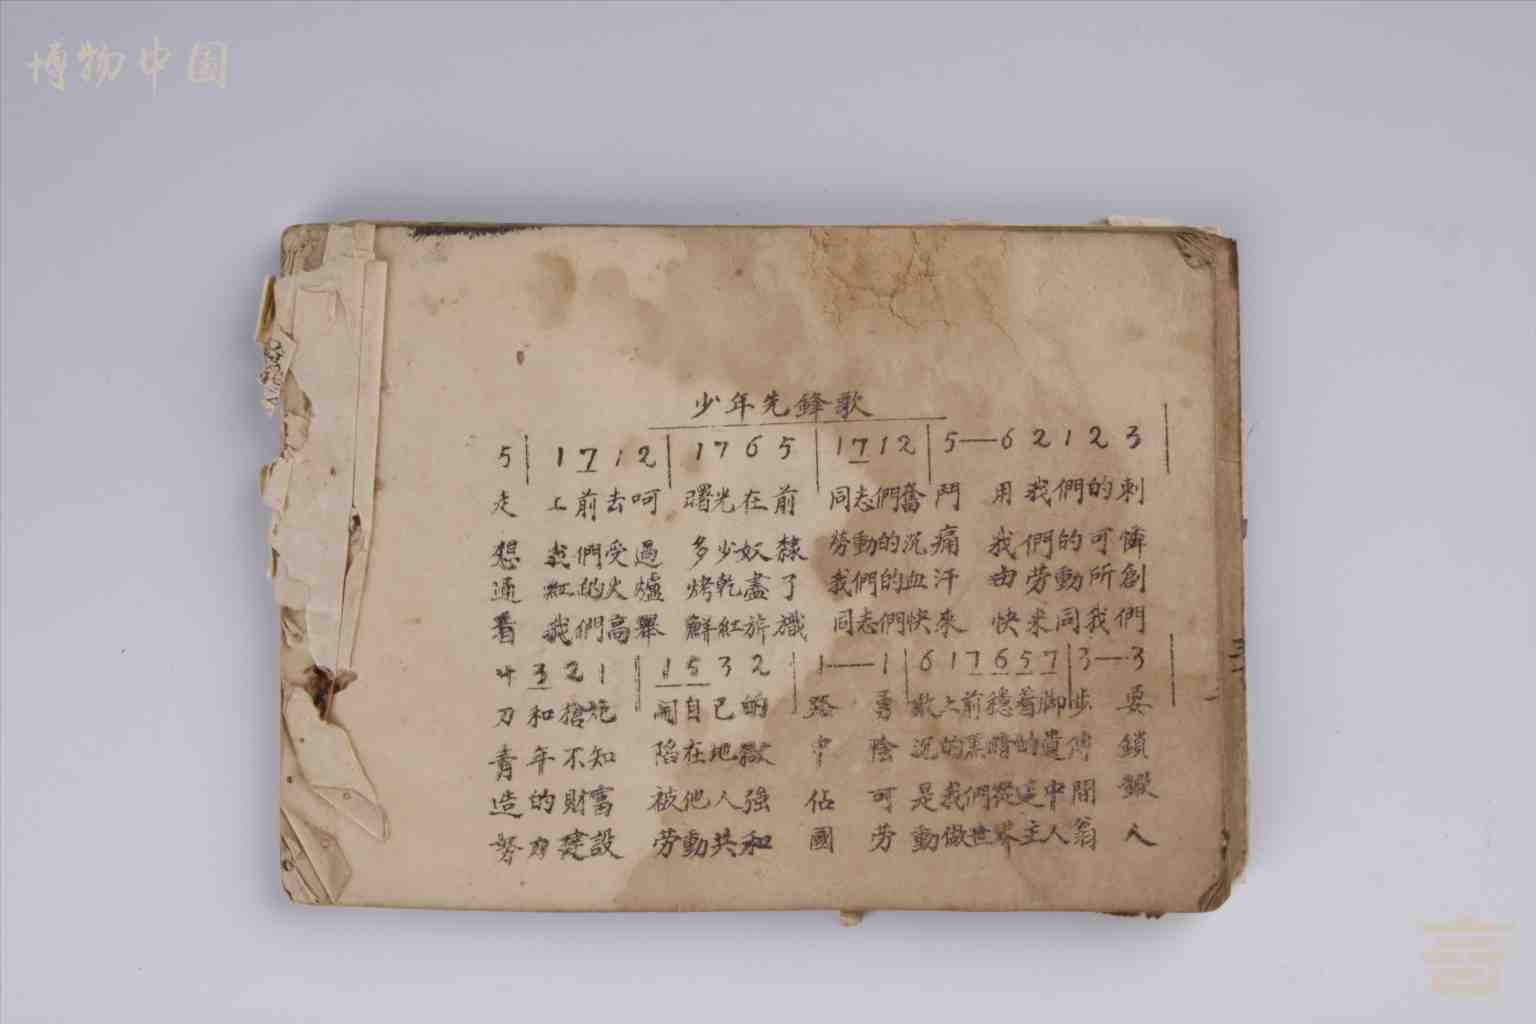 博物中国
少年先鋒歌
5 | 1 7 1 2 | 1 7 6 5 | 1 7 1 2 | 5 — 6 2 1 2 3 |
走 上前去呵 曙光在前 同志們奮鬥 用我們的刺
想 我們受過 多少奴隸 勞動的沉痛 我們的可憐
通 紅的火爐 烤乾盡了 我們的血汗 由劳動所創
看 我們高舉 鮮紅旂幟 同志們快來 快来同我們
4 3 2 1 | 1 5 3 2 | 1 — 1 | 6 1 7 6 5 7 | 3 — 3 |
刀和槍炮 開自己的 路 勇敢上前穩着脚步 要
青年不知 陷在地獄 中 陰沉的黑暗的遺傳 鎖
造的財富 被他人強 佔 可是我們從這中間 鍛
努力建設 劳動共和 國 劳動做世界主人翁 人